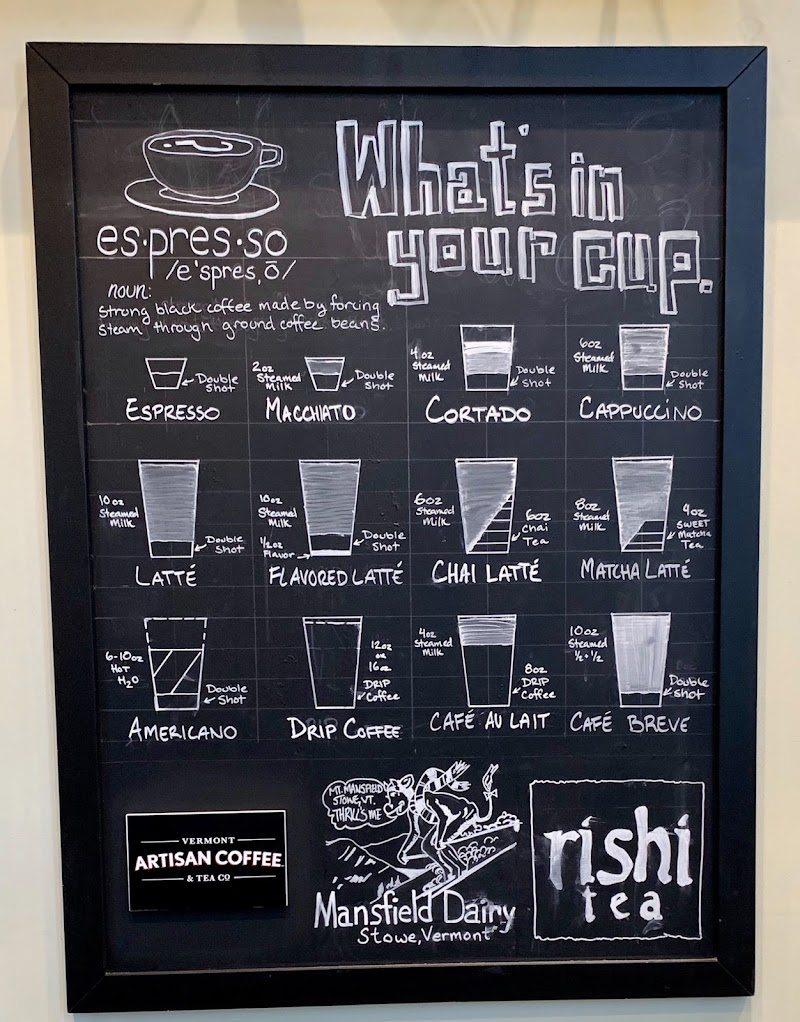 What's in
your cup.
es·pres·so
/e'spres,ō/
noun:
strong black coffee made by forcing
steam through ground coffee beans.
Double
Shot
ESPRESSO
2oz
Steamed
Milk
Double
Shot
MACCHIATO
4oz
Steamed
Milk
Double
Shot
CORTADO
6oz
Steamed
Milk
Double
Shot
CAPPUCCINO
10oz
Steamed
Milk
Double
Shot
LATTÉ
10oz
Steamed
Milk
1/2oz
Flavor
Double
Shot
FLAVORED LATTÉ
6oz
Steamed
Milk
6oz
Chai
Tea
CHAI LATTÉ
8oz
Steamed
Milk
4oz
SWEET
Matcha
Tea
MATCHA LATTÉ
6-10oz
HOT
H2O
Double
Shot
AMERICANO
12oz
or
16oz
DRIP
Coffee
DRIP COFFEE
4oz
Steamed
Milk
8oz
DRIP
Coffee
CAFÉ AU LAIT
10oz
Steamed
1/2 + 1/2
Double
Shot
CAFÉ BREVE
VERMONT
ARTISAN COFFEE
& TEA CO
MT. MANSFIELD
STOWE, VT.
THRILLS ME
Mansfield Dairy
Stowe, Vermont
rishi
tea